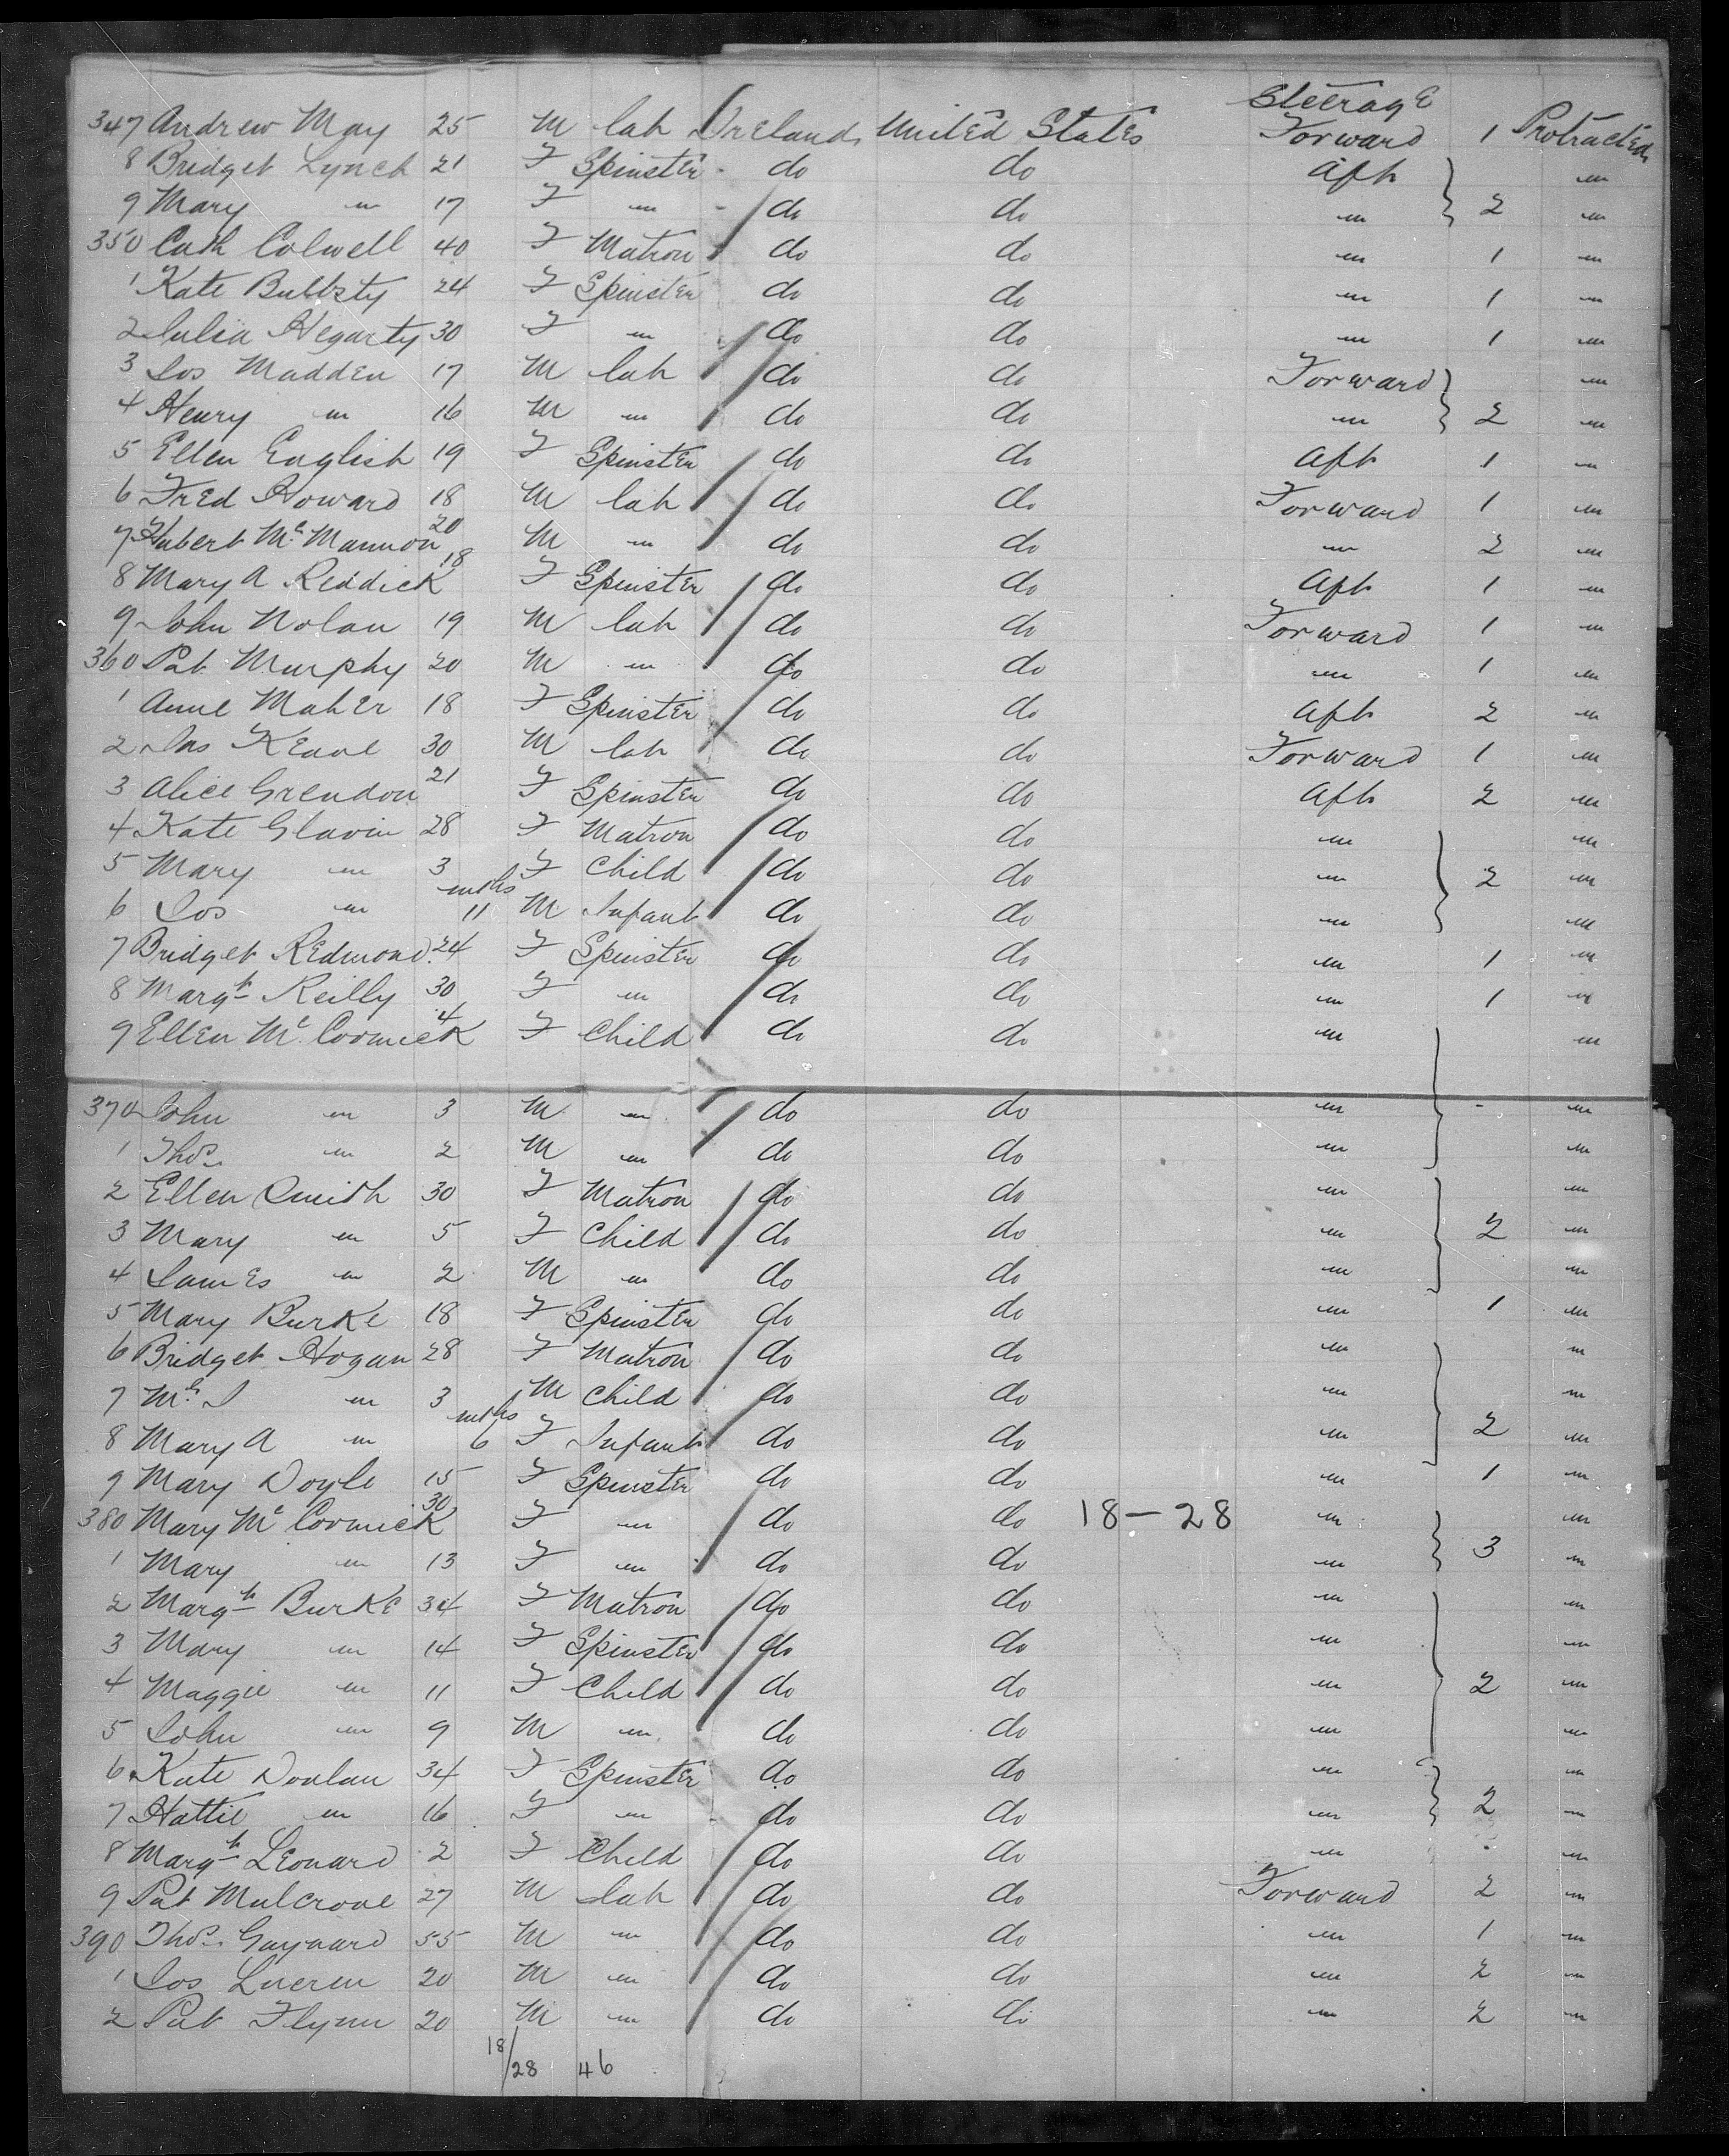 Steerage
347 Andrew May 25 M lab Ireland United States Forward 1 Protracted
8 Bridget Lynch 21 F Spinster do do Aft "
9 Mary " 17 F " do do " 2 "
350 Cath Colwell 40 F Matron do do " 1 "
1 Kate 24 F Spinster do do " 1 "
2 Julia Hegarty 30 F " do do " 1 "
3 Jos Madden 17 M lab do do Forward "
4 Henry " 16 M " do do " 2 "
5 Ellen English 19 F Spinster do do Aft 1 "
6 Fred Howard 18 M lab do do Forward 1 "
7 Hubert Mc Mannon 20 M " do do " 2 "
8 Mary A Reddick 18 F Spinster do do Aft 1 "
9 John Nolan 19 M lab do do Forward 1 "
360 Pat Murphy 20 M " do do " 1 "
1 Anne Maher 18 F Spinster do do Aft 2 "
2 Jas Keane 30 M lab do do Forward 1 "
3 Alice Grendon 21 F Spinster do do Aft 2 "
4 Kate Glavin 28 F Matron do do " "
5 Mary " 3 F Child do do " 2 "
6 Jos " mths 11 M Infant do do " "
7 Bridget Redmond 24 F Spinster do do " 1 "
8 Margt Reilly 30 F " do do " 1 "
9 Ellen Mc Cormick 4 F Child do do " "
370 John " 3 M " do do " - "
1 Thos " 2 M " do do " "
2 Ellen Smith 30 F Matron do do " "
3 Mary " 5 F Child do do " 2 "
4 James " 2 M " do do " "
5 Mary Burke 18 F Spinster do do " 1 "
6 Bridget Hogan 28 F Matron do do " "
7 " 3 M Child do do " "
8 Mary A " mths 6 F Infant do do " 2 "
9 Mary Doyle 15 F Spinster do do " 1 "
380 Mary Mc Cormick 30 F " do do 18-28 " "
1 Mary " 13 F " do do " 3 "
2 Margt Burke 34 F Matron do do " "
3 Mary " 14 F Spinster do do " "
4 Maggie " 11 F Child do do " 2 "
5 John " 9 M " do do " "
6 Kate Donlan 34 F Spinster do do " "
7 Hattie " 16 F " do do " 2 "
8 Margt Leonard 2 F Child do do " - "
9 Pat Mulcrone 27 M lab do do Forward 2 "
390 Thos Gaynard 55 M " do do " 1 "
1 Jos 20 M " do do " 2 "
2 Pat Flynn 20 M " do do " 2 "
18/28 46